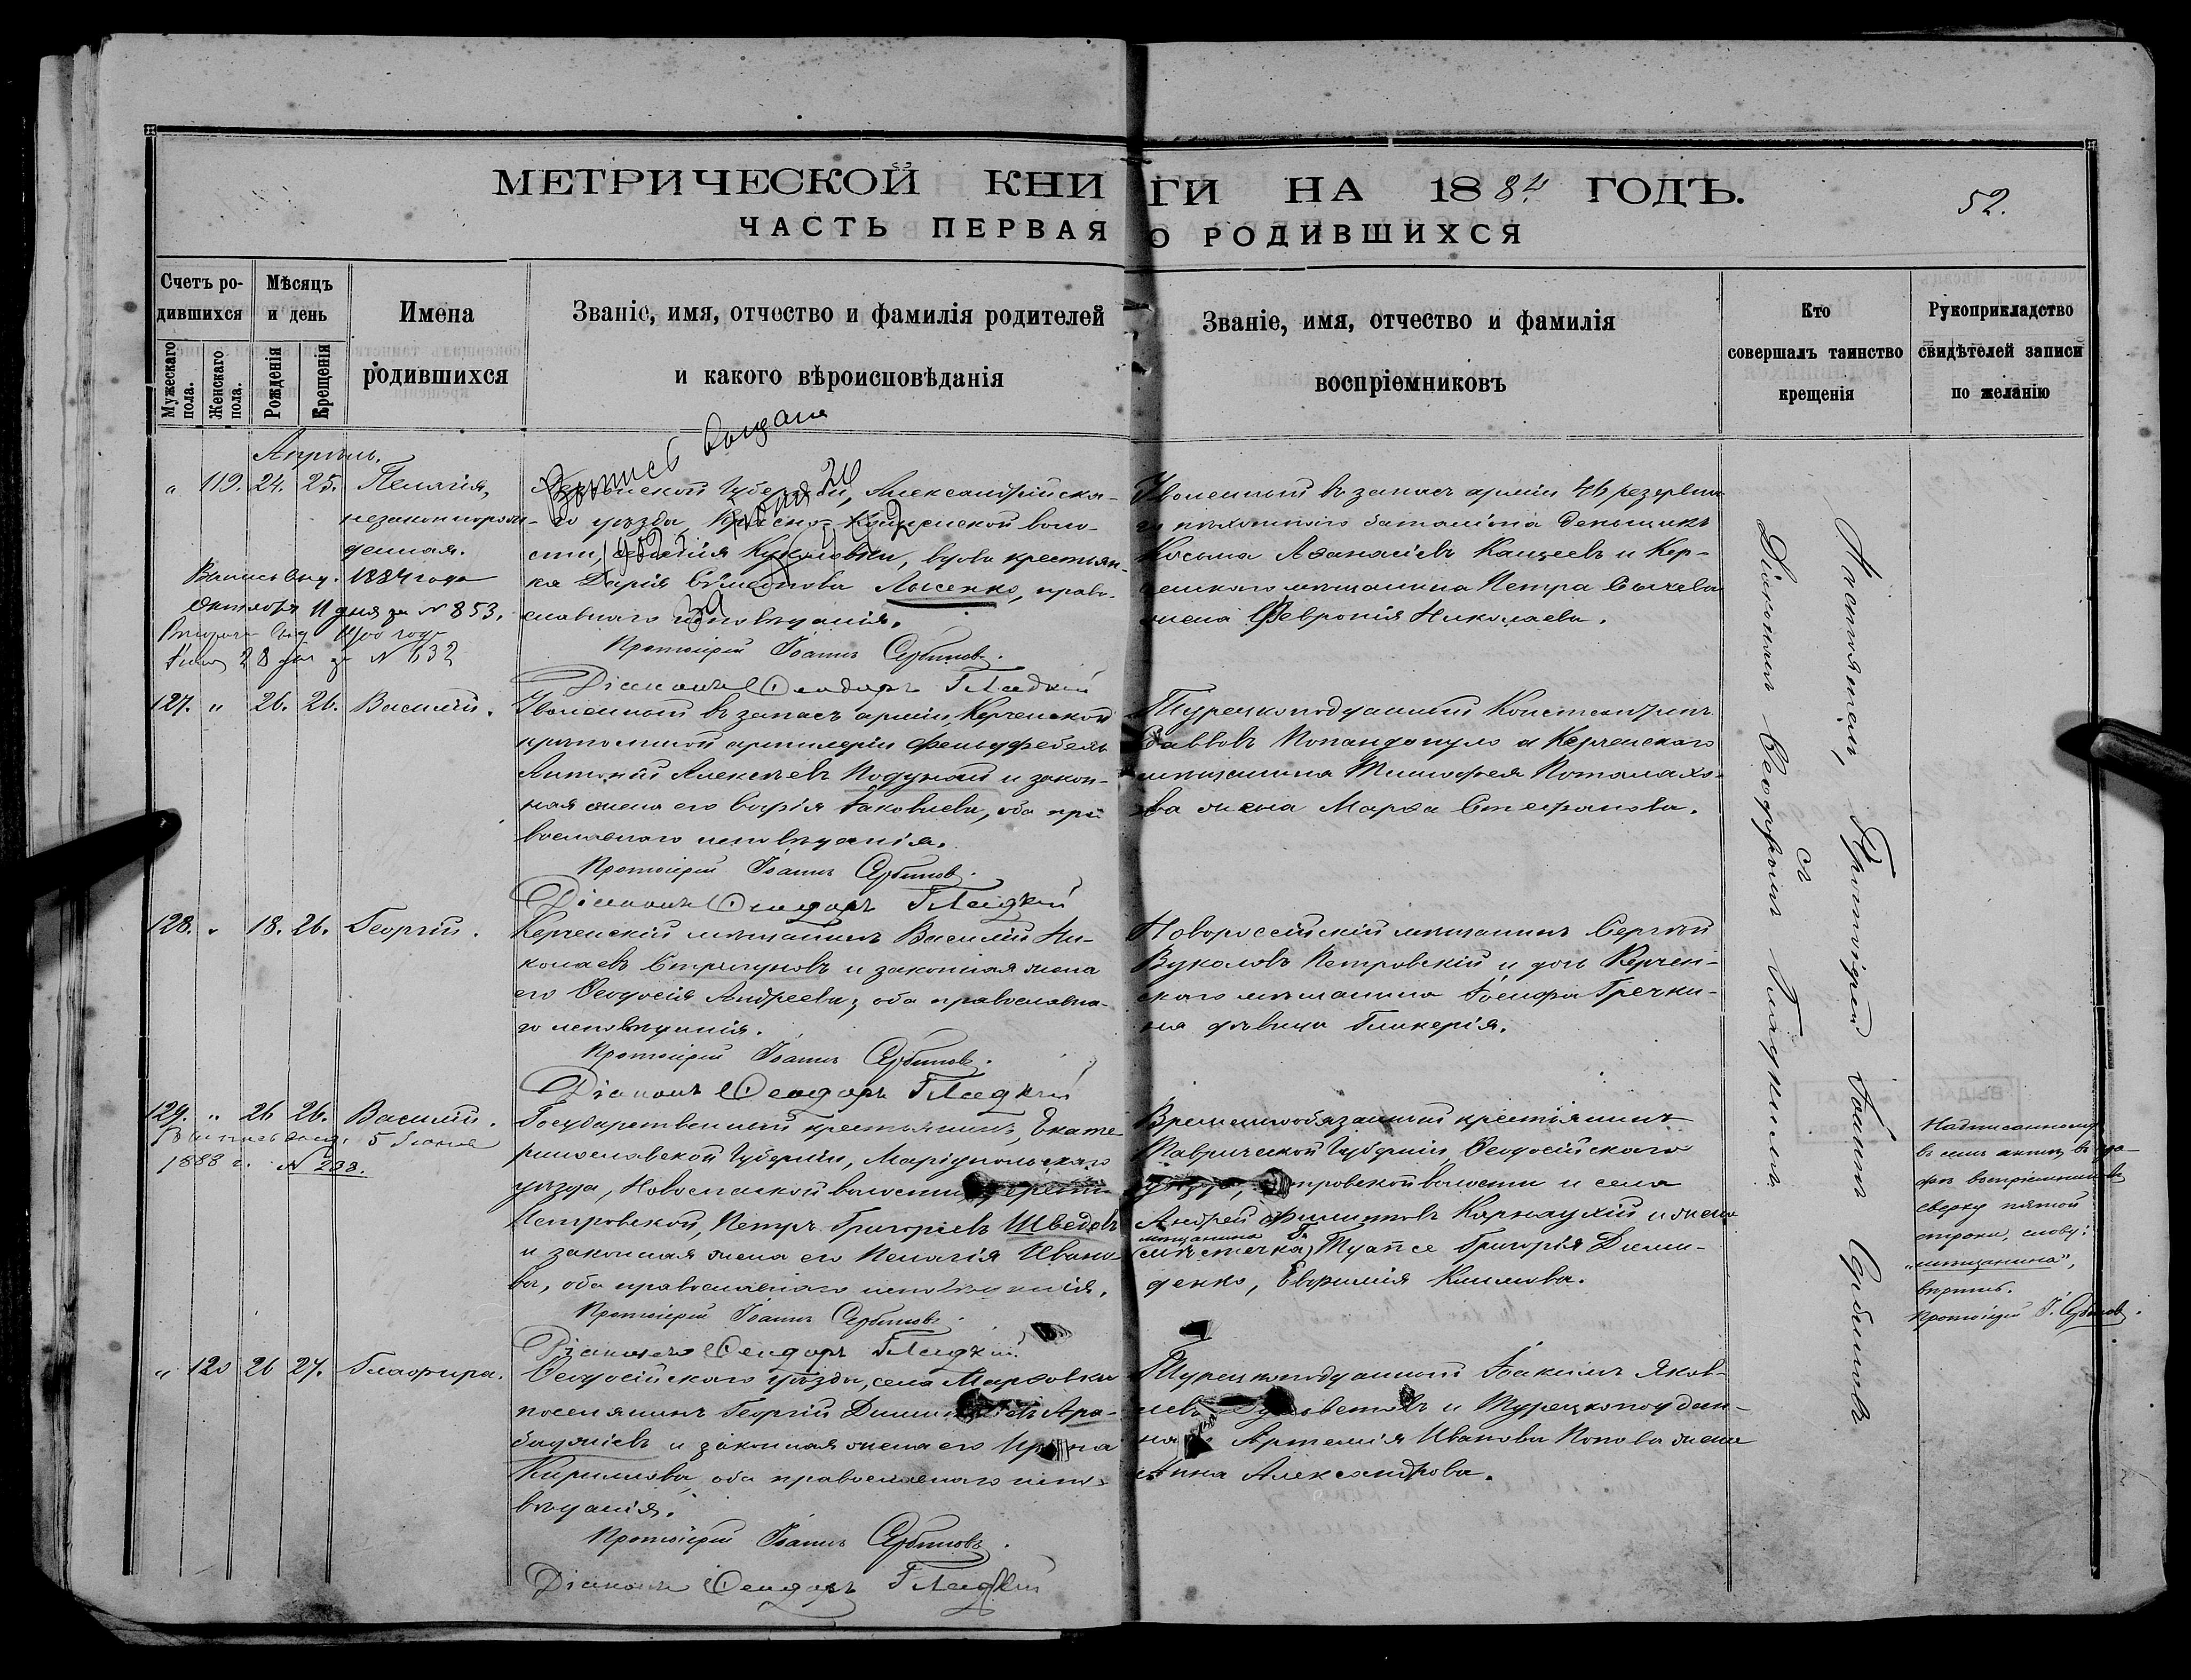 МЕТРИЧЕСКОЙ КНИГИ НА 1884 ГОДЪ.
52.
ЧАСТЬ ПЕРВАЯ О РОДИВШИХСЯ
Счетъ родившихся
Мужескаго пола.
Женскаго пола.
Мѣсяцъ и день
Рожденія
Крещенія
Имена
родившихся
Званіе, имя, отчество и фамилія родителей
и какого вѣроисповѣданія
Званіе, имя, отчество и фамилія
воспріемниковъ
Кто
совершалъ таинство
крещенія
Рукоприкладство
свидѣтелей записи
по желанію
Апрѣль.
„ 119. 24. 25. Пелагія,
незаконнорож-
денная.
Выпись выд. 1884 года
Октября 11 дня за № 853.
28 дня за № 632
Выпись выдана
Губерніи, Александрійска-
го уѣзда, Красно-Каменской воло-
сти, вдова крестьян-
ка Дарія Симеонова Лысенко, право-
славнаго исповѣданія.
Протоіерей Іоаннъ Сербиновъ.
Діаконъ Ѳеодоръ Гладкій
Уволенный въ запасъ арміи 46 резервна-
го пѣхотнаго баталіона деньщикъ
Косьма Аѳанасіевъ Кащеевъ и Кер-
ченскаго мѣщанина Петра Сычева
жена Февронія Николаева.
127. „ 26. 26. Василій.
Уволенный въ запасъ арміи, Керченской
крѣпостной артилеріи фельдфебель
Антоній Алексѣевъ Подунай и закон-
ная жена его Софія Іаковлева, оба пра-
вославнаго исповѣданія.
Протоіерей Іоаннъ Сербиновъ.
Діаконъ Ѳеодоръ Гладкій
Турецкоподданный Константинъ
Саввовъ Попандопуло и Керченскаго
мѣщанина Тимофея
ва жена Марѳа Стефанова.
128. „ 18. 26. Георгій.
Керченскій мѣщанинъ Василій Ни-
колаевъ Стригуновъ и законная жена
его Ѳеодосія Андреева, оба православна-
го исповѣданія.
Протоіерей Іоаннъ Сербиновъ.
Діаконъ Ѳеодоръ Гладкій
Новороссійскій мѣщанинъ Сергѣй
Вуколовъ Петровскій и дочь Керчен-
скаго мѣщанина Іосифа Гречки-
на дѣвица Гликерія.
129. „ 26 26. Василій.
Выпись выд. 5 Іюня
1888 г. № 233.
Государственный крестьянинъ, Екате-
ринославской Губерніи, Маріупольскаго
уѣзда, Новоспаской волости,
Петровской, Петръ Григоріевъ Шведовъ
и законная жена его Пелагія Ивано-
ва, оба православнаго исповѣданія.
Протоіерей Іоаннъ Сербиновъ.
Діаконъ Ѳеодоръ Гладкій
Временнообязанный крестіянинъ
Таврической Губерніи, Ѳеодосійскаго
уѣзда, Петровской волости и села
Андрей Филиповъ Карнаухій и жена
мѣщанина
(мѣстечка) Туапсе Григорія Деми-
денко, Евфимія Климова.
Надписанному
въ семъ актѣ, въ гра-
фѣ воспріемниковъ
сверху пятой
строки, слову:
„мѣщанина”,
вѣрить.
Протоіерей І. Сербиновъ.
„ 120 26 27. Глафира.
Ѳеодосійскаго уѣзда, села Марѳовки
поселянинъ Георгій Димитріевъ Ара-
баджіевъ и законная жена его Ирина
Кириллова, оба православнаго испо-
вѣданія.
Протоіерей Іоаннъ Сербиновъ.
Діаконъ Ѳеодоръ Гладкій
Турецкоподданный Іоакимъ Яков-
левъ и Турецкоподдан-
наго Артемія Иванова Попова жена
Анна Александрова.
Настоятель, Протоіерей Іоаннъ Сербиновъ
съ
Діакономъ Ѳеодоромъ Гладкимъ.